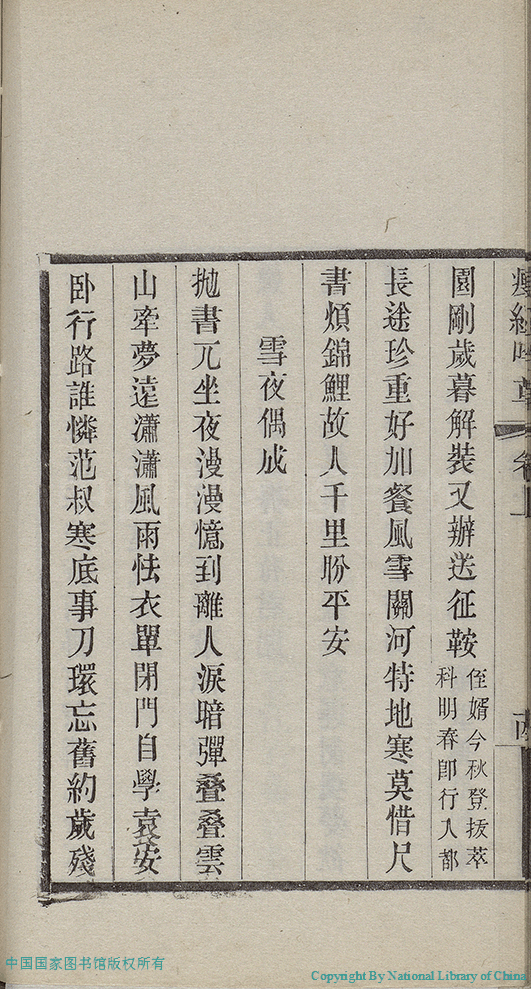 園剛歲暮解裝又辦送征鞍侄婿今秋登拔萃科明春卽行入都
長途珍重好加餐風雪關河特地寒莫惜尺
書煩錦鯉故人千里盼平安
雪夜偶成
拋書兀坐夜漫漫憶到離人淚暗彈疊疊雲
山牽夢遠瀟瀟風雨怯衣單閉門自學袁安
卧行路誰憐范叔寒底事刀環忘舊約歲殘
中国国家图书馆版权所有
Copyright By National Library of China